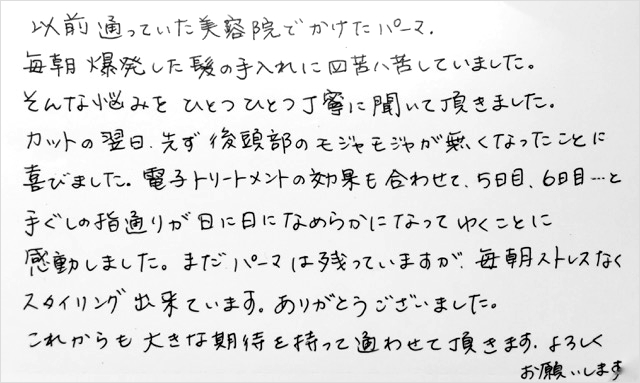 以前通っていた美容院でかけたパーマ.
毎朝爆発した髪の手入れに四苦八苦していました。
そんな悩みをひとつひとつ丁寧に聞いて頂きました。
カットの翌日.先ず後頭部のモジャモジャが無くなったことに
喜びました。電子トリートメントの効果も合わせて、5日目、6日目…と
手ぐしの指通りが日に日になめらかになってゆくことに
感動しました。まだパーマは残っていますが、毎朝ストレスなく
スタイリング出来ています。ありがとうございました。
これからも大きな期待を持って通わせて頂きます.よろしく
お願いします